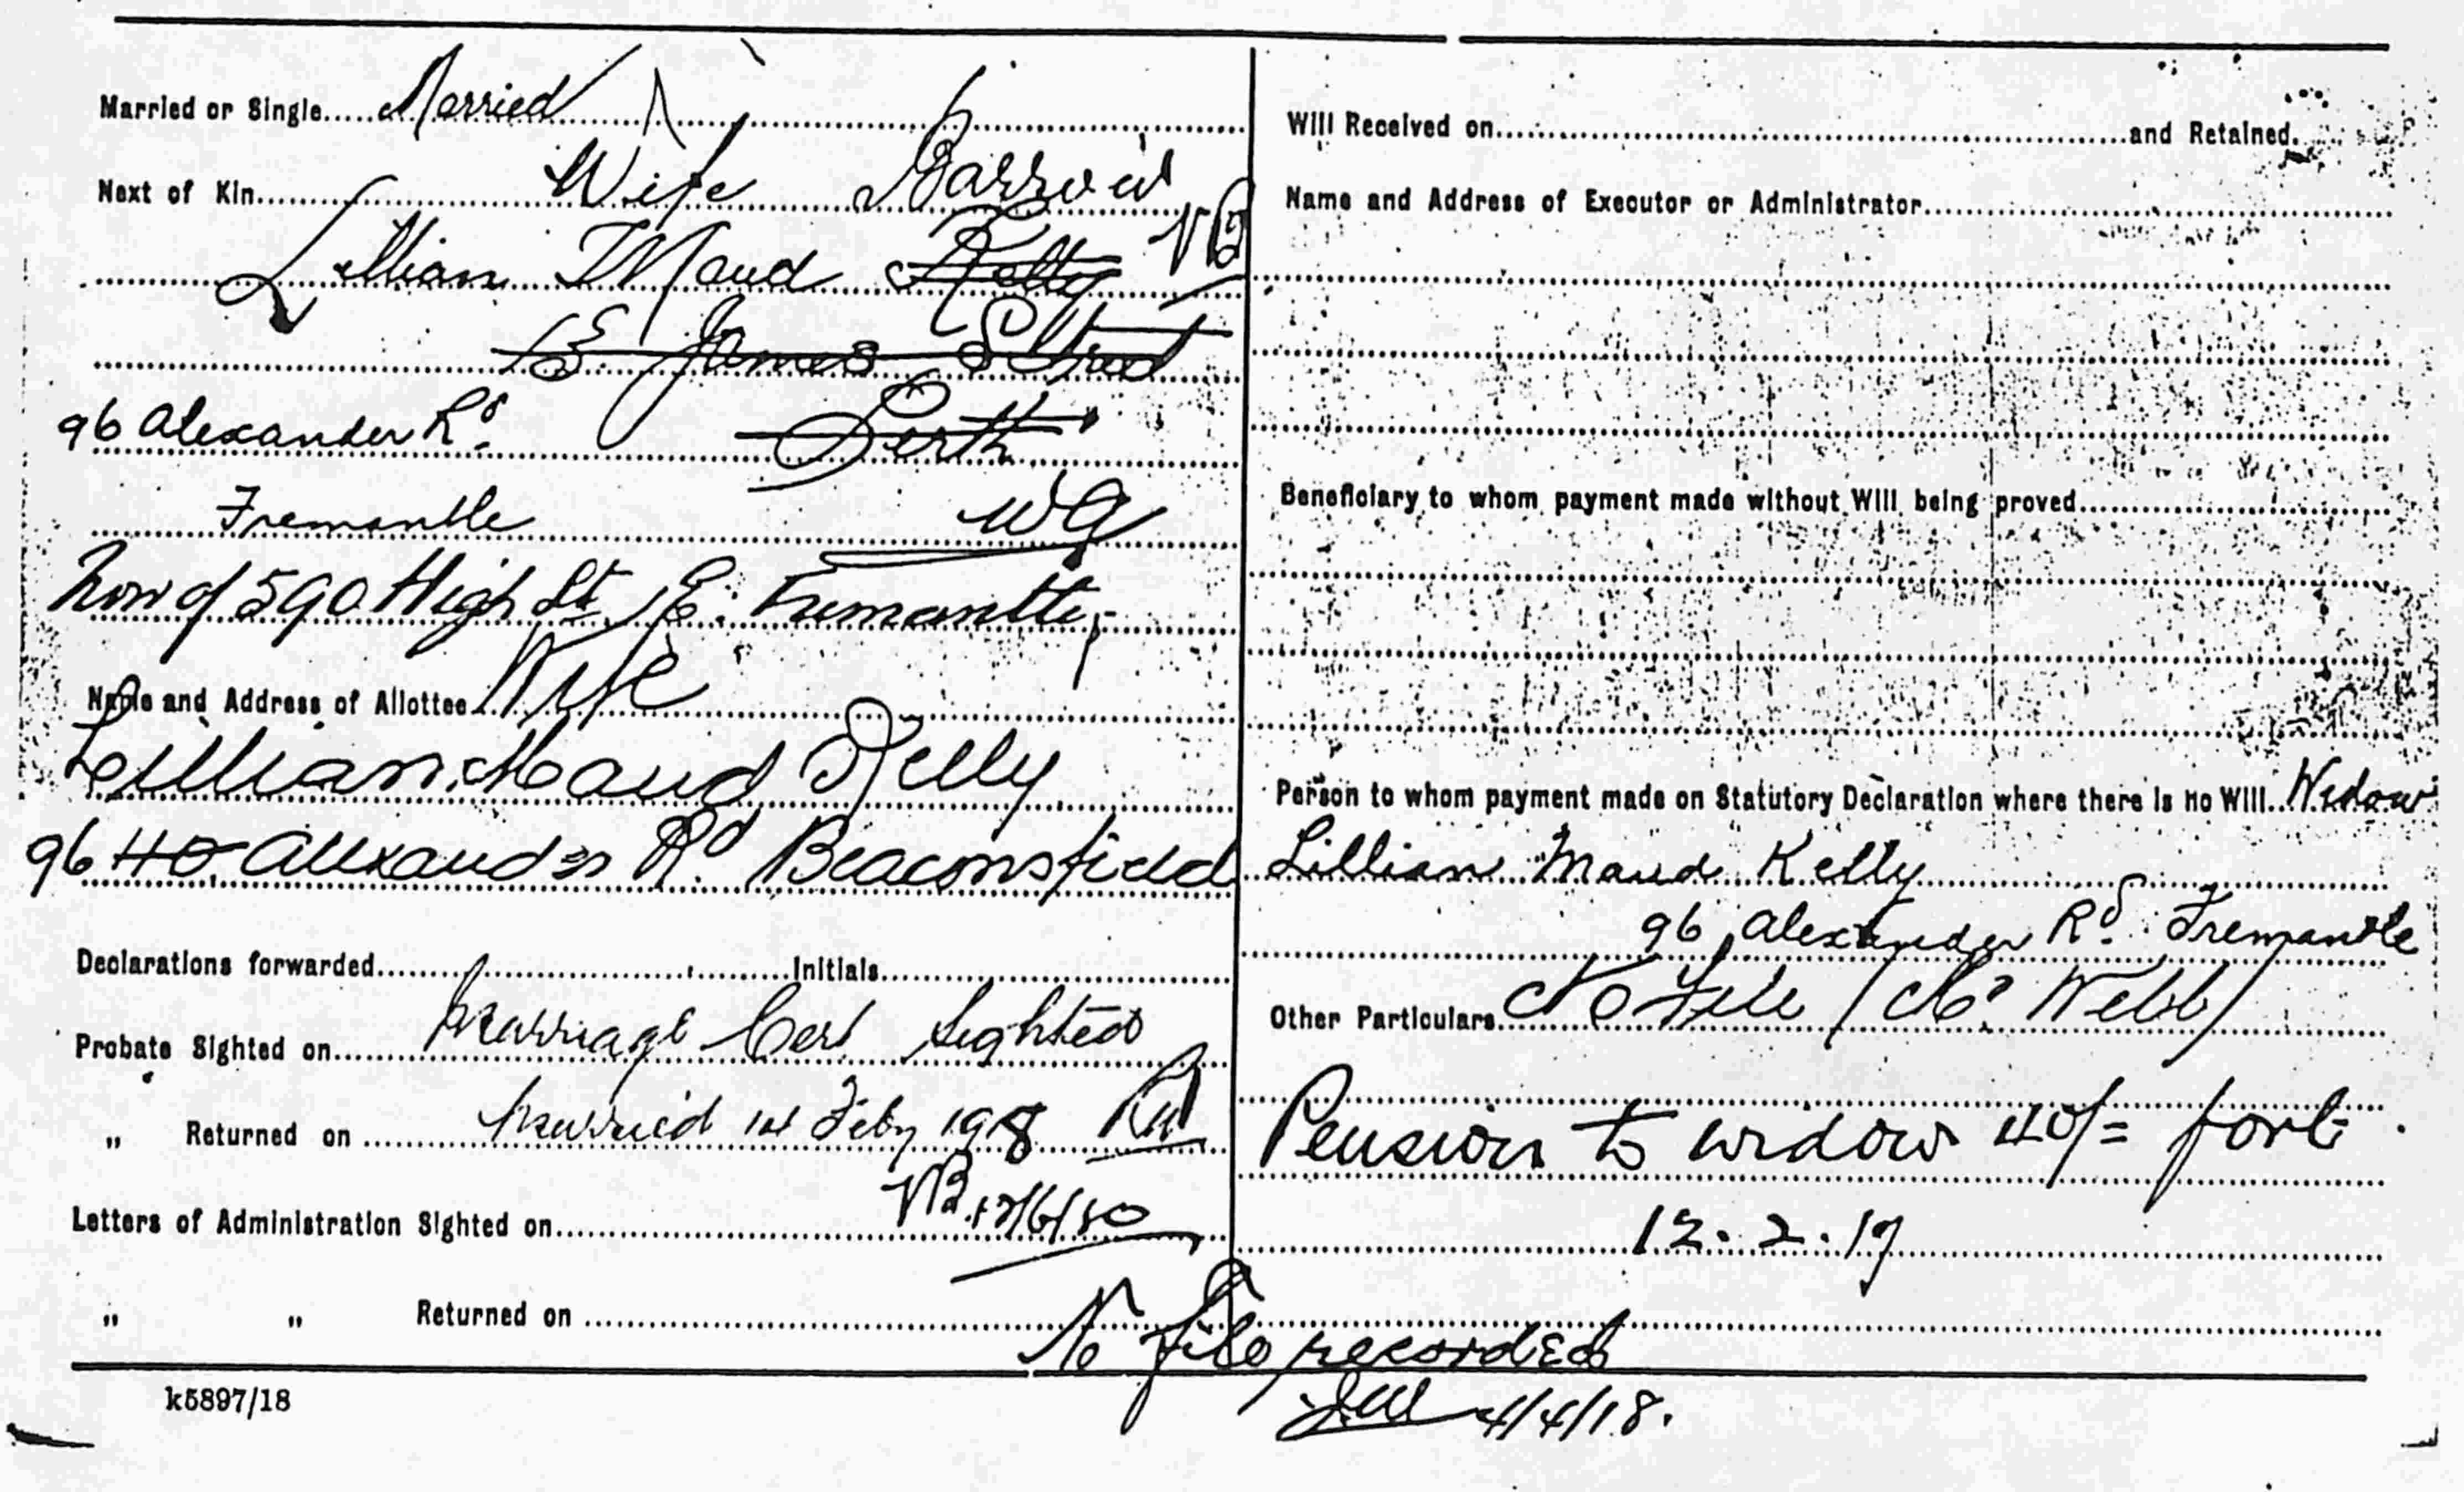 Married or Single..... Married
Next of Kin..... Wife Barrow
Lillian Maud Kelly
James Street
96 Alexander Rd. Perth
Fremantle WA
Now of 590 High St. E. Fremantle
Name and Address of Allottee Wife
Lillian Maud Kelly
96 40 Alexander Rd Beaconsfield
Declarations forwarded..... Initials.....
Probate Sighted on..... Marriage Cert Sighted
„ Returned on ..... Married 1st Feby 1918
Letters of Administration Sighted on.....
„ „ Returned on .....
k5897/18
Will Received on..... and Retained.
Name and Address of Executor or Administrator.....
Beneficiary to whom payment made without Will being proved.....
Person to whom payment made on Statutory Declaration where there is no Will.. Widow
Lillian Maud Kelly
96 Alexander Rd. Fremantle
Other Particulars. No File (Mr Webb)
Pension to widow 40/= fort.
12.2.19
No file recorded
4/4/18.